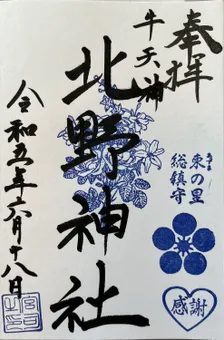 奉拝
牛天神
北野神社
令和五年六月十八日
東の里
総鎮守
感謝